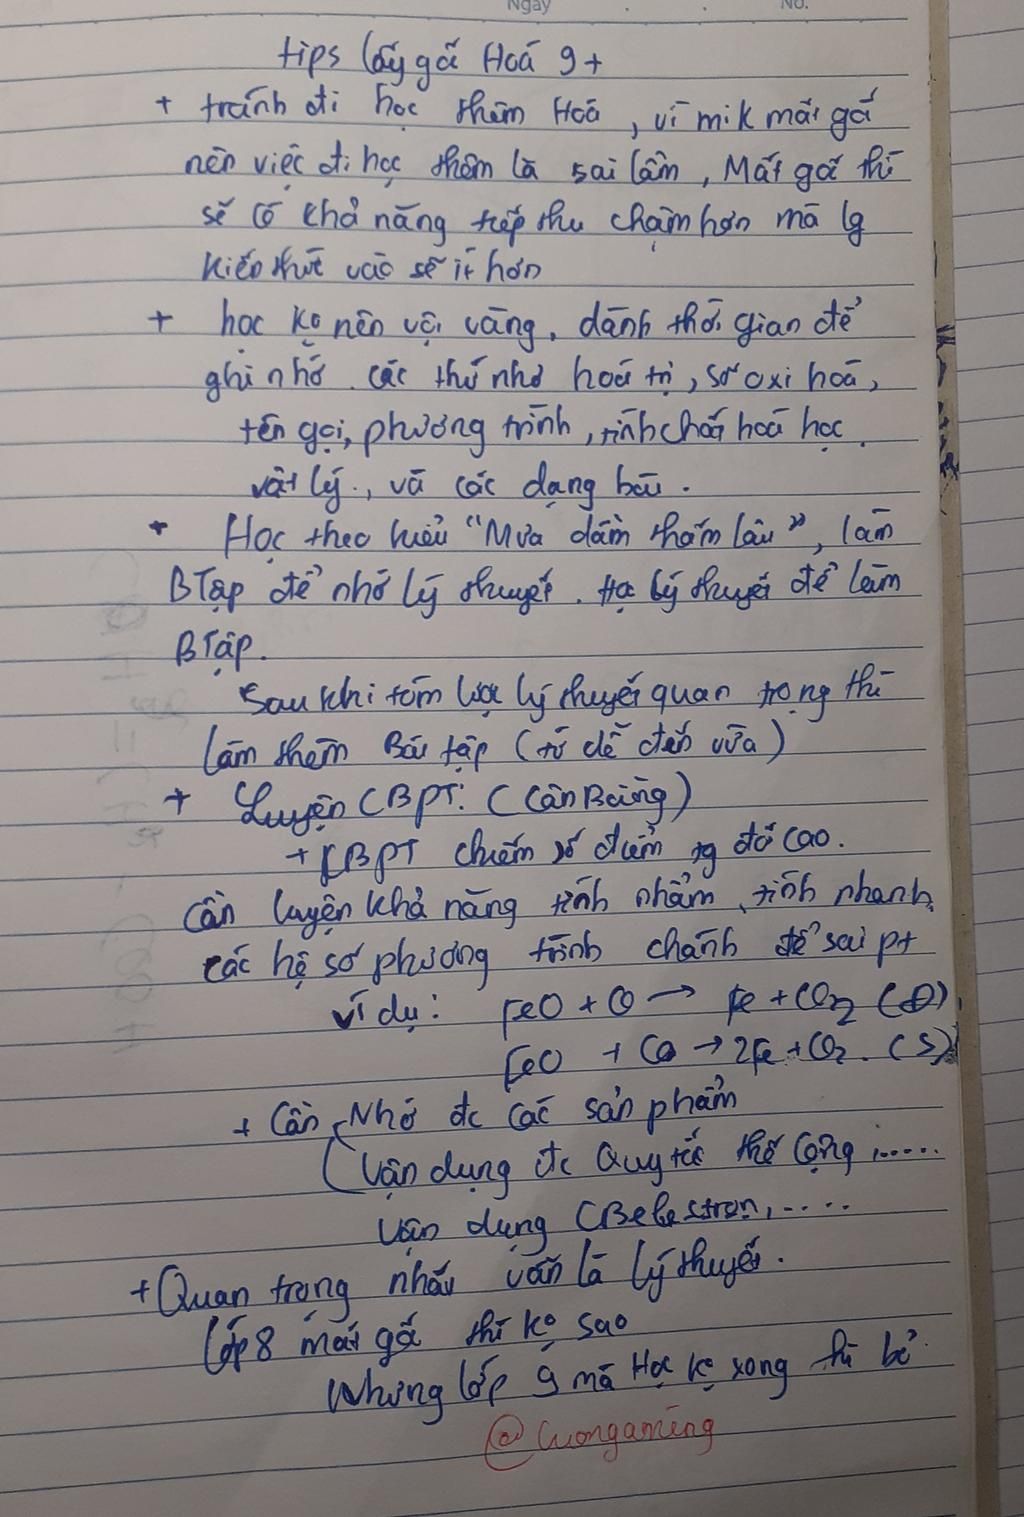 Ngày No.
tips lấy gố Hoá 9+
+ tránh đi học thêm Hoá, vì mik mất gố
nên việc đi học thêm là sai lầm, Mất gố thì
sẽ có khả năng tiếp thu chậm hơn mà lg
kiến thức vào sẽ ít hơn
+ học ko nên vội vàng, dành thời gian để
ghi nhớ các thứ như hoá trị, số oxi hoá,
tên gọi, phương trình, tính chất hoá học
vật lý, và các dạng bài.
+ Học theo kiểu "Mưa dầm thấm lâu", làm
BTập để nhớ lý thuyết. Học lý thuyết để làm
BTập.
Sau khi tóm lược lý thuyết quan trọng thì
làm thêm Bài tập (từ dễ đến vừa)
+ Luyện CBPT: (Cân Bằng)
+ CBPT chiếm số điểm tg đố cao.
cần luyện khả năng tính nhẩm, tính nhanh
các hệ số phương trình chánh để sai pt
ví dụ: FeO + CO → Fe + CO2 (Đ),
FeO + CO → 2Fe + CO2. (S)
+ Cần Nhớ đc các sản phẩm
Vận dụng đc Quy tắc thế cộng,.....
Vận dụng CBelectron,.....
+ Quan trọng nhất vẫn là lý thuyết.
lớp 8 mất gố thì ko sao
Nhưng lớp 9 mà Học ko xong thì bỏ
@Cuongaming